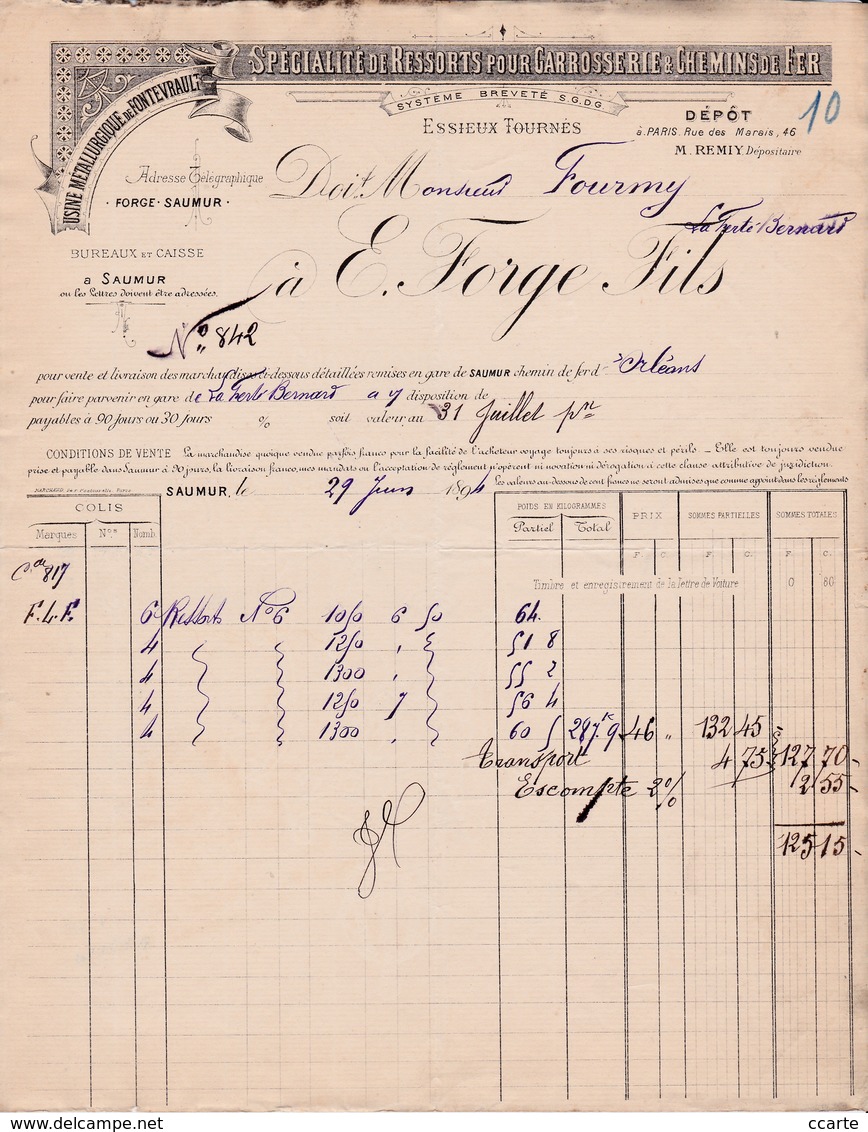 SPÉCIALITÉ DE RESSORTS POUR CARROSSERIE & CHEMINS DE FER
USINE MÉTALLURGIQUE DE FONTEVRAULT
SYSTÈME BRÉVETÉ S.G.D.G.
ESSIEUX TOURNÉS
DÉPÔT
à PARIS, Rue des Marais, 46
M. REMIY, Dépositaire
10
Adresse Télégraphique
FORGE - SAUMUR
Doit Monsieur Fourmy
La Ferté-Bernard
BUREAUX ET CAISSE
à SAUMUR
ou les Lettres doivent être adressées.
à E. Forge Fils
No 842
pour vente et livraison des marchandises ci-dessous détaillées remises en gare de SAUMUR chemin de fer d'Orléans
pour faire parvenir en gare de La Ferté Bernard a s/ disposition de
payables à 90 jours ou 30 jours % soit valeur au 31 Juillet pn
CONDITIONS DE VENTE La marchandise quoique vendue parfois franco pour la facilité de l'acheteur voyage toujours à ses risques et périls _ Elle est toujours vendue
prise et payable dans Saumur à 90 jours, la livraison franco, mes mandats ou l'acceptation de réglement n'opèrent ni novation ni dérogation à cette clause attributive de juridiction.
Les valeurs au-dessous de cent francs ne seront admises que comme appoint dans les règlements
SAUMUR, le 29 Juin 1894
COLIS
Marques Nos Nomb.
POIDS EN KILOGRAMMES
Partiel Total
PRIX SOMMES PARTIELLES SOMMES TOTALES
F. C. F. C. F. C.
Cde 817
Timbre et enregistrement de la lettre de Voiture 0 80
F.L.F. 6 Ressorts No 6 1050 6 50 64.
4 1250 . 51 8
4 1300 . 55 2
4 1250 7 56 4
4 1300 . 60 5 287k9 46 " 132 45
Transport 4 75 127 70
Escompte 2% 2 55
125 15
ccarte